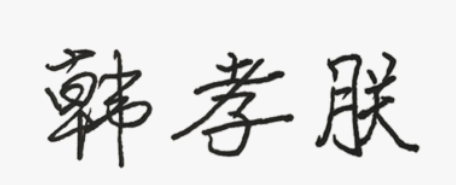 韩孝朕